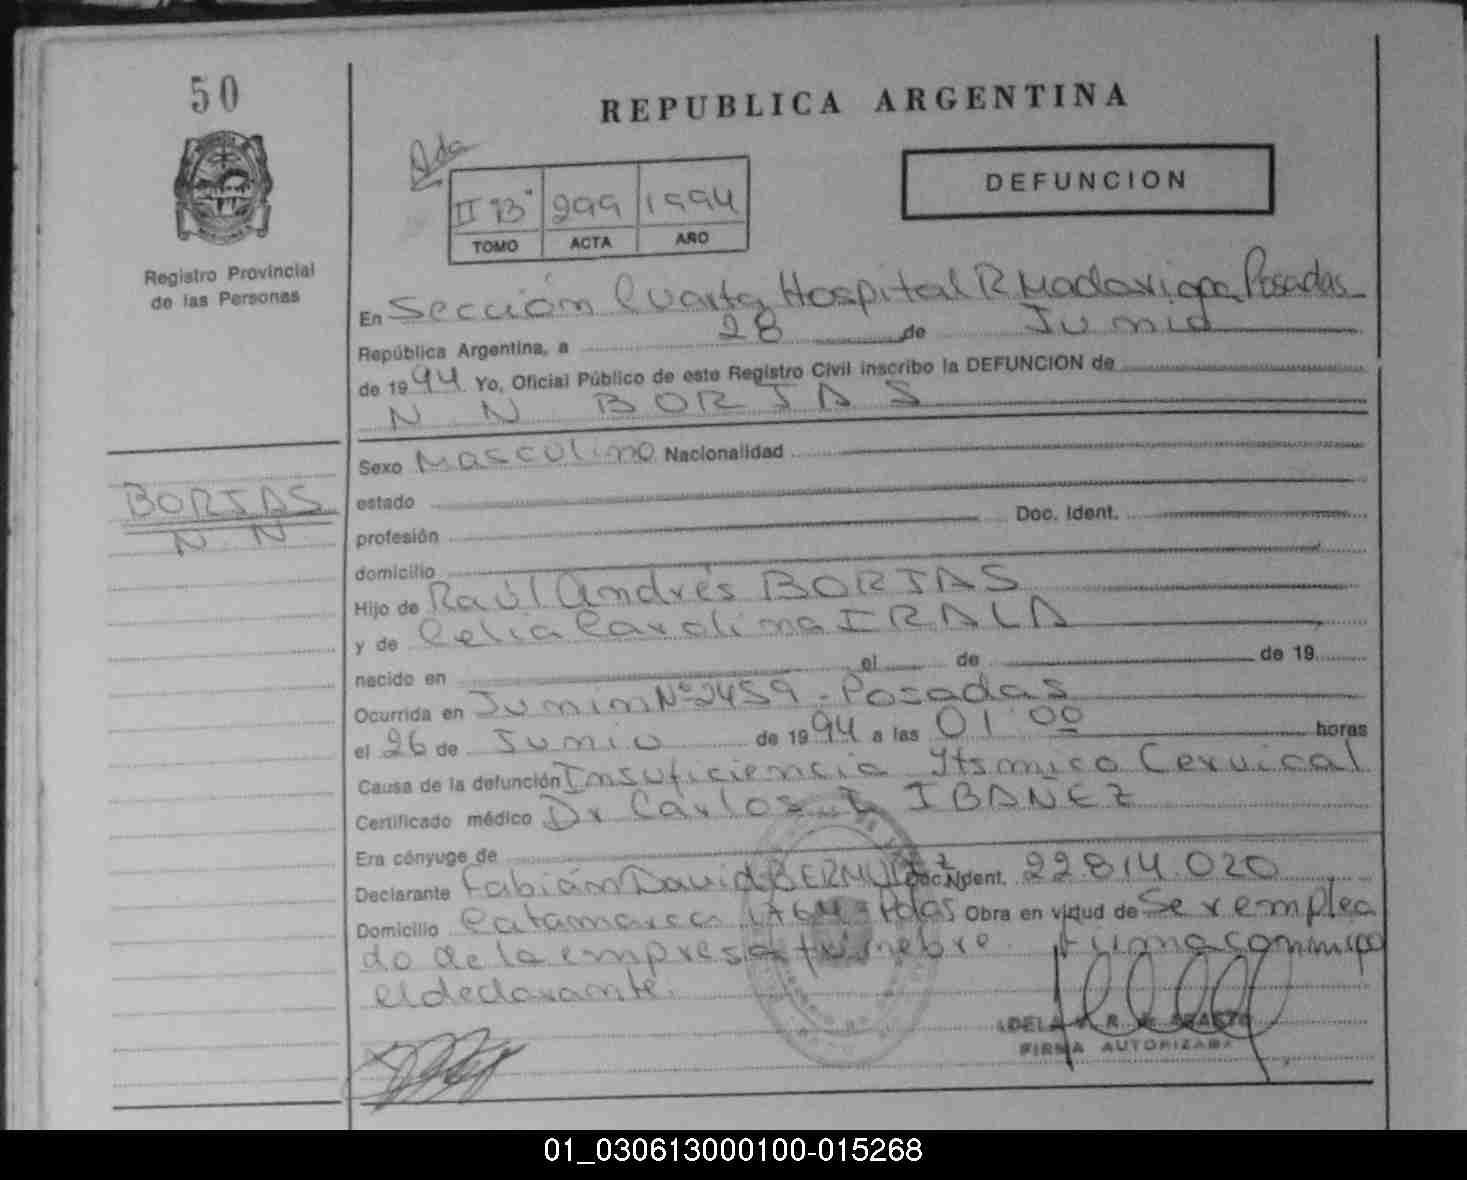 50
REPUBLICA ARGENTINA
DEFUNCION
II "B" 299 1994
TOMO ACTA AÑO
Registro Provincial
de las Personas
En Sección Cuarta Hospital R Madariaga Posadas
República Argentina, a 28 de Junio
de 1994 Yo, Oficial Público de este Registro Civil inscribo la DEFUNCION de
N N BORJAS
Sexo Masculino Nacionalidad
BORJAS
N. N
estado
profesión Doc. Ident.
domicilio
Hijo de Raúl Andrés BORJAS
y de Celia Carolina IRALA
nacido en el de de 19
Ocurrida en Junin Nº 2459 - Posadas
el 26 de Junio de 1994 a las 01 00 horas
Causa de la defunción Insuficiencia Itsmico Cervical
Certificado médico Dr Carlos I. IBAÑEZ
Era cónyuge de
Declarante Fabián David Doc. Ident. 22.814.020
Domicilio Catamarca Pdas Obra en virtud de Ser emplea
do de la empresa funebre. Firma conmigo
el declarante.
FIRMA AUTORIZADA
01_030613000100-015268